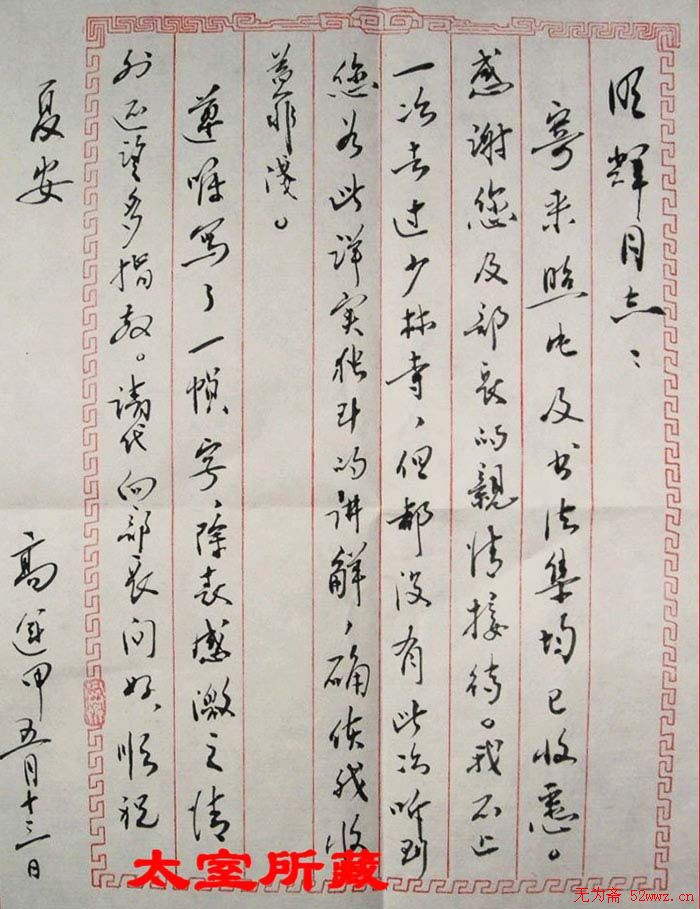 明辉同志：
寄来照片及书法集均已收悉。
感谢您及部长的亲情接待。我不止
一次去过少林寺，但都没有此次听到
您如此详实独到的讲解，确使我收
益非浅。
遵嘱写了一幅字，除表感激之情
外还望多指教。请代向部长问好，顺祝
夏安
高运甲 五月十三日
太室所藏
无为斋 52wwz.cn